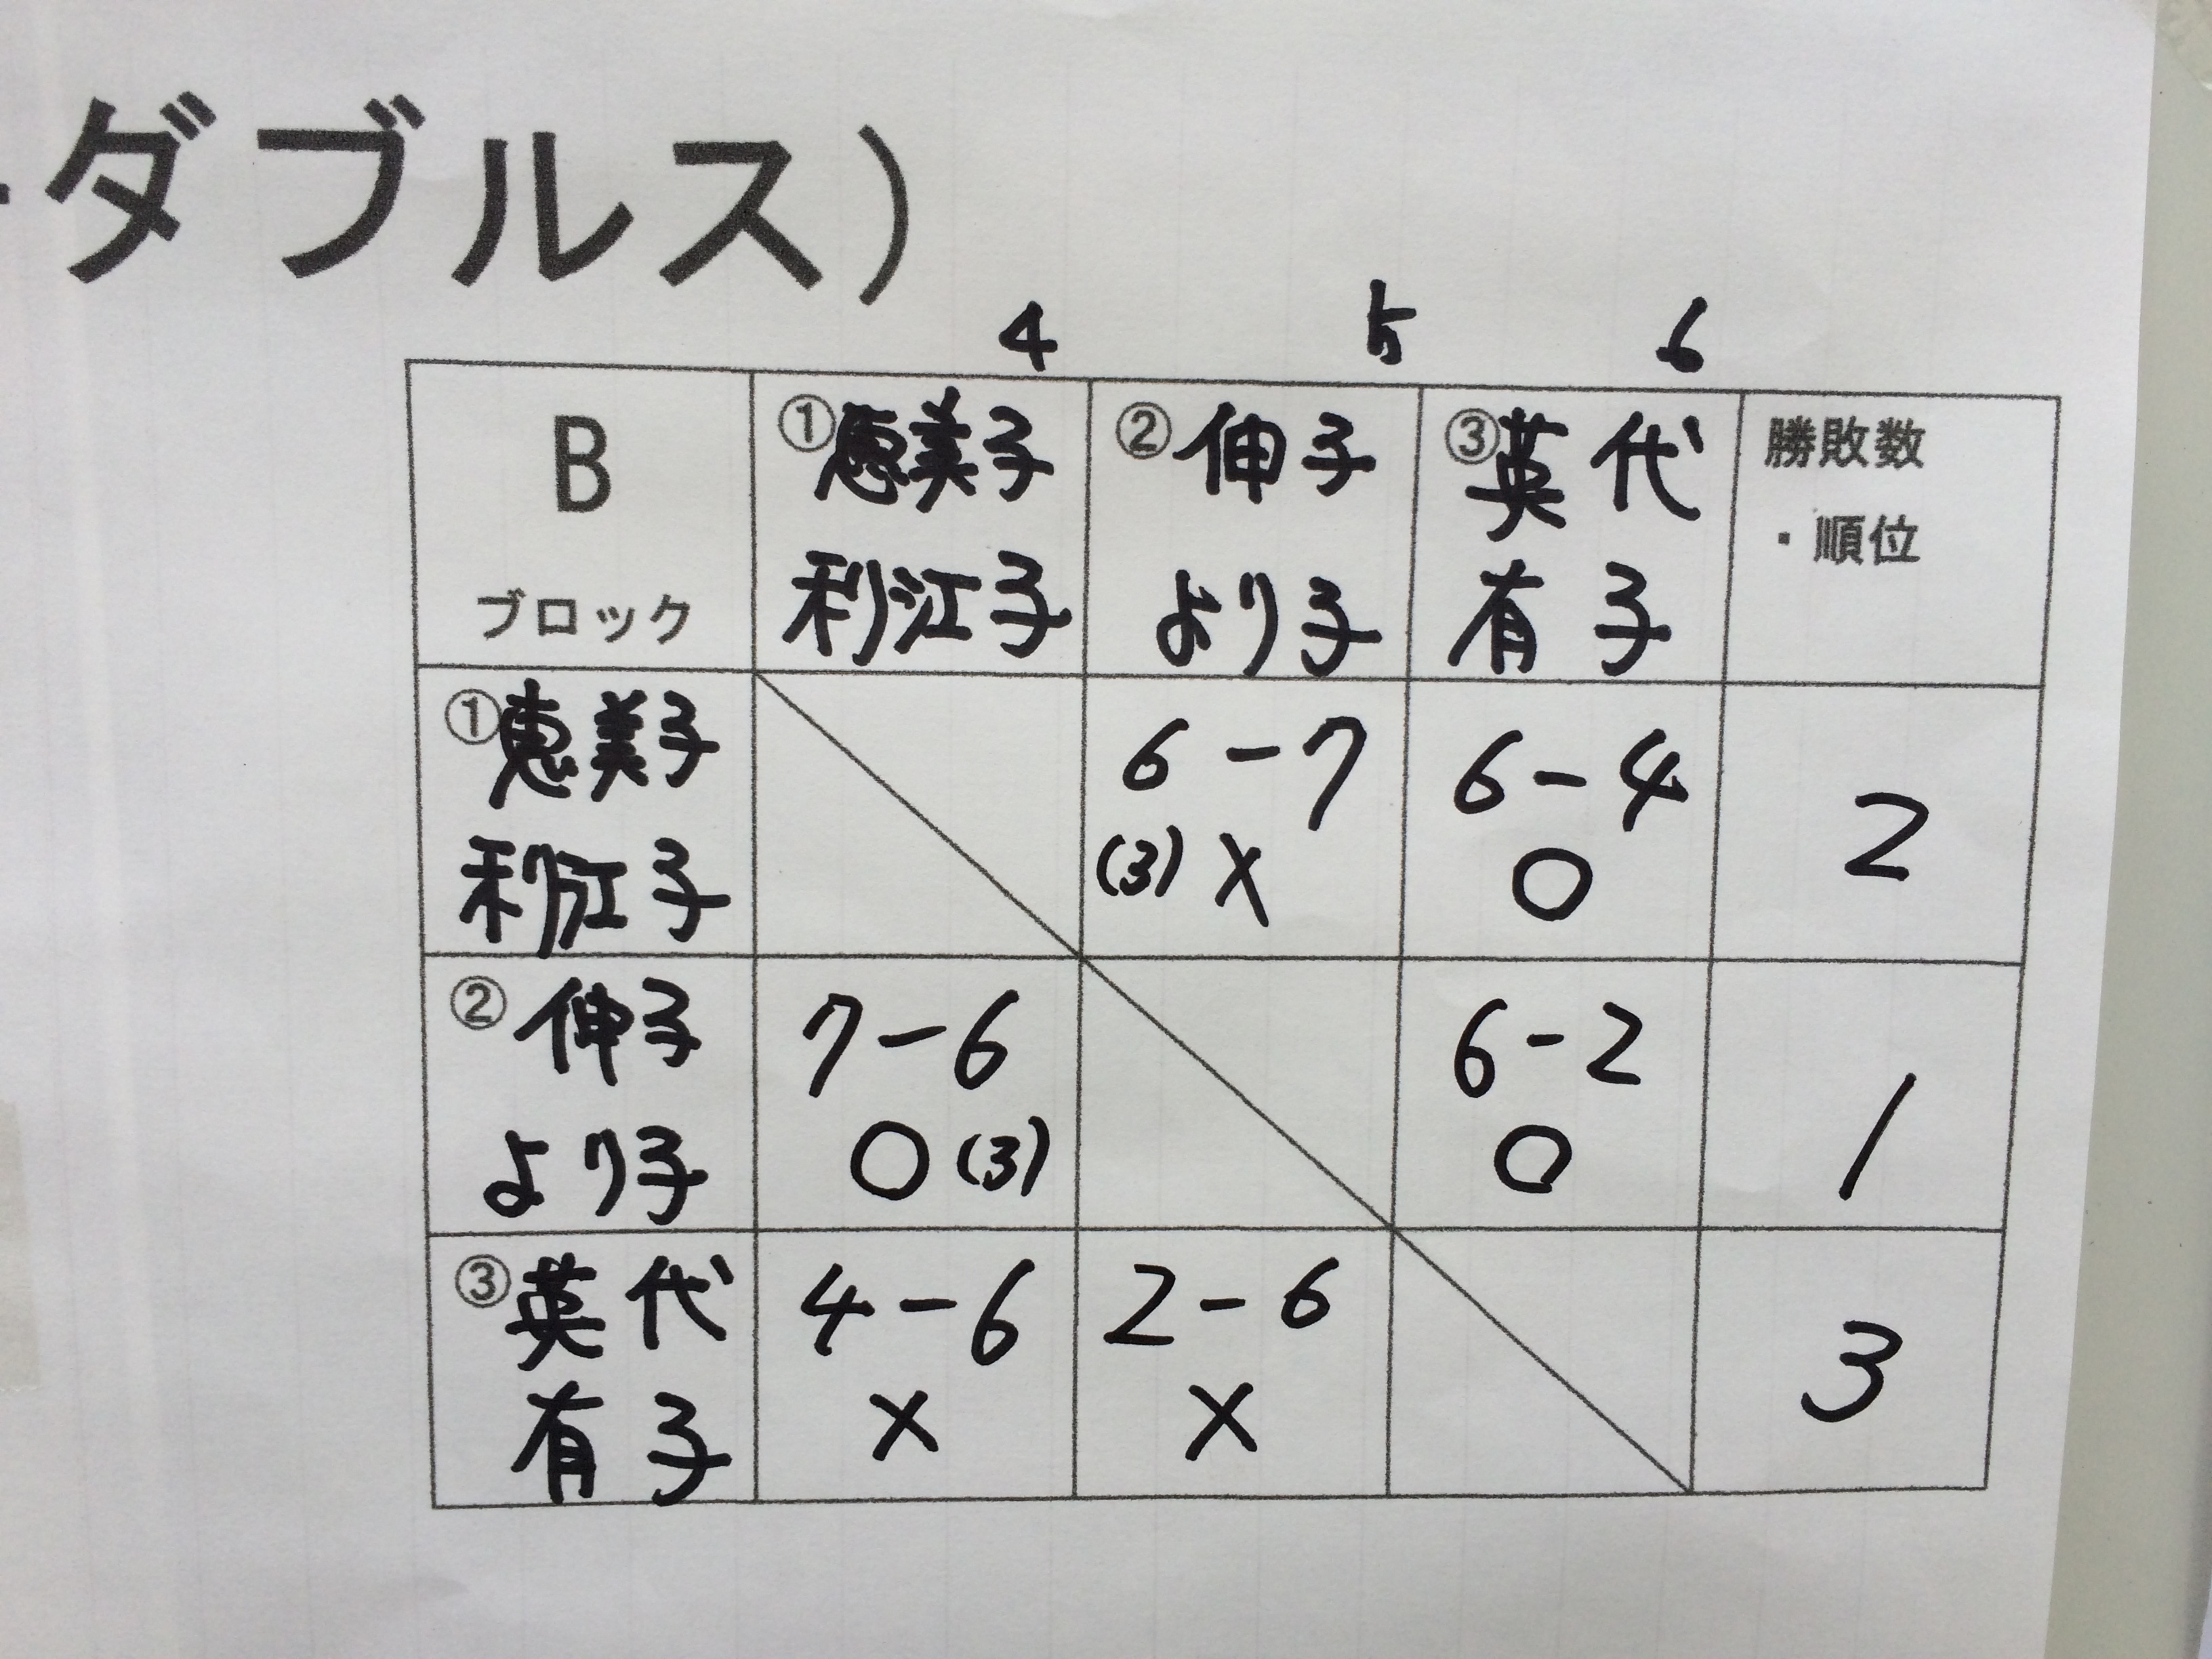 ダブルス)
4 5 6
B ①恵美子 ②伸子 ③英代 勝敗数
・順位
ブロック 利江子 より子 有子
①恵美子 6-7 6-4 2
利江子 (3) × ○
②伸子 7-6 6-2 1
より子 ○ (3) ○
③英代 4-6 2-6 3
有子 × ×